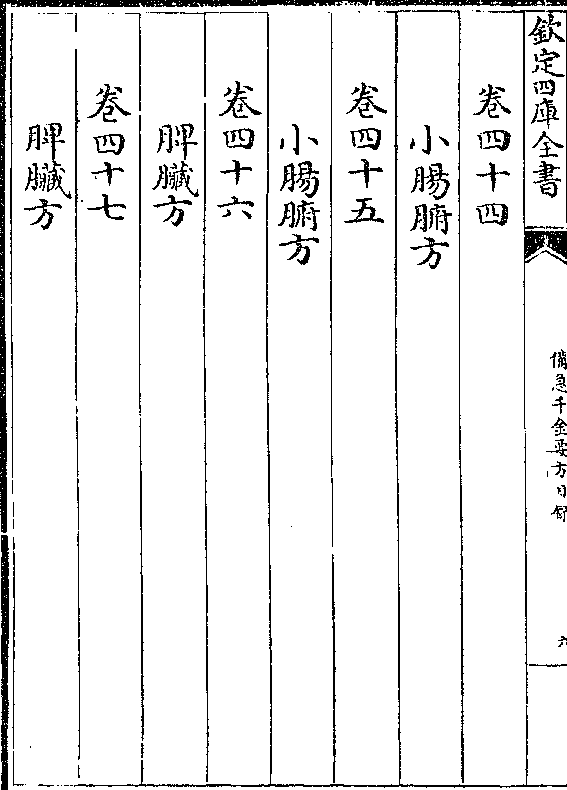 欽定四庫全書
備急千金要方目錄
六
卷四十四
小腸腑方
卷四十五
小腸腑方
卷四十六
脾臟方
卷四十七
脾臟方